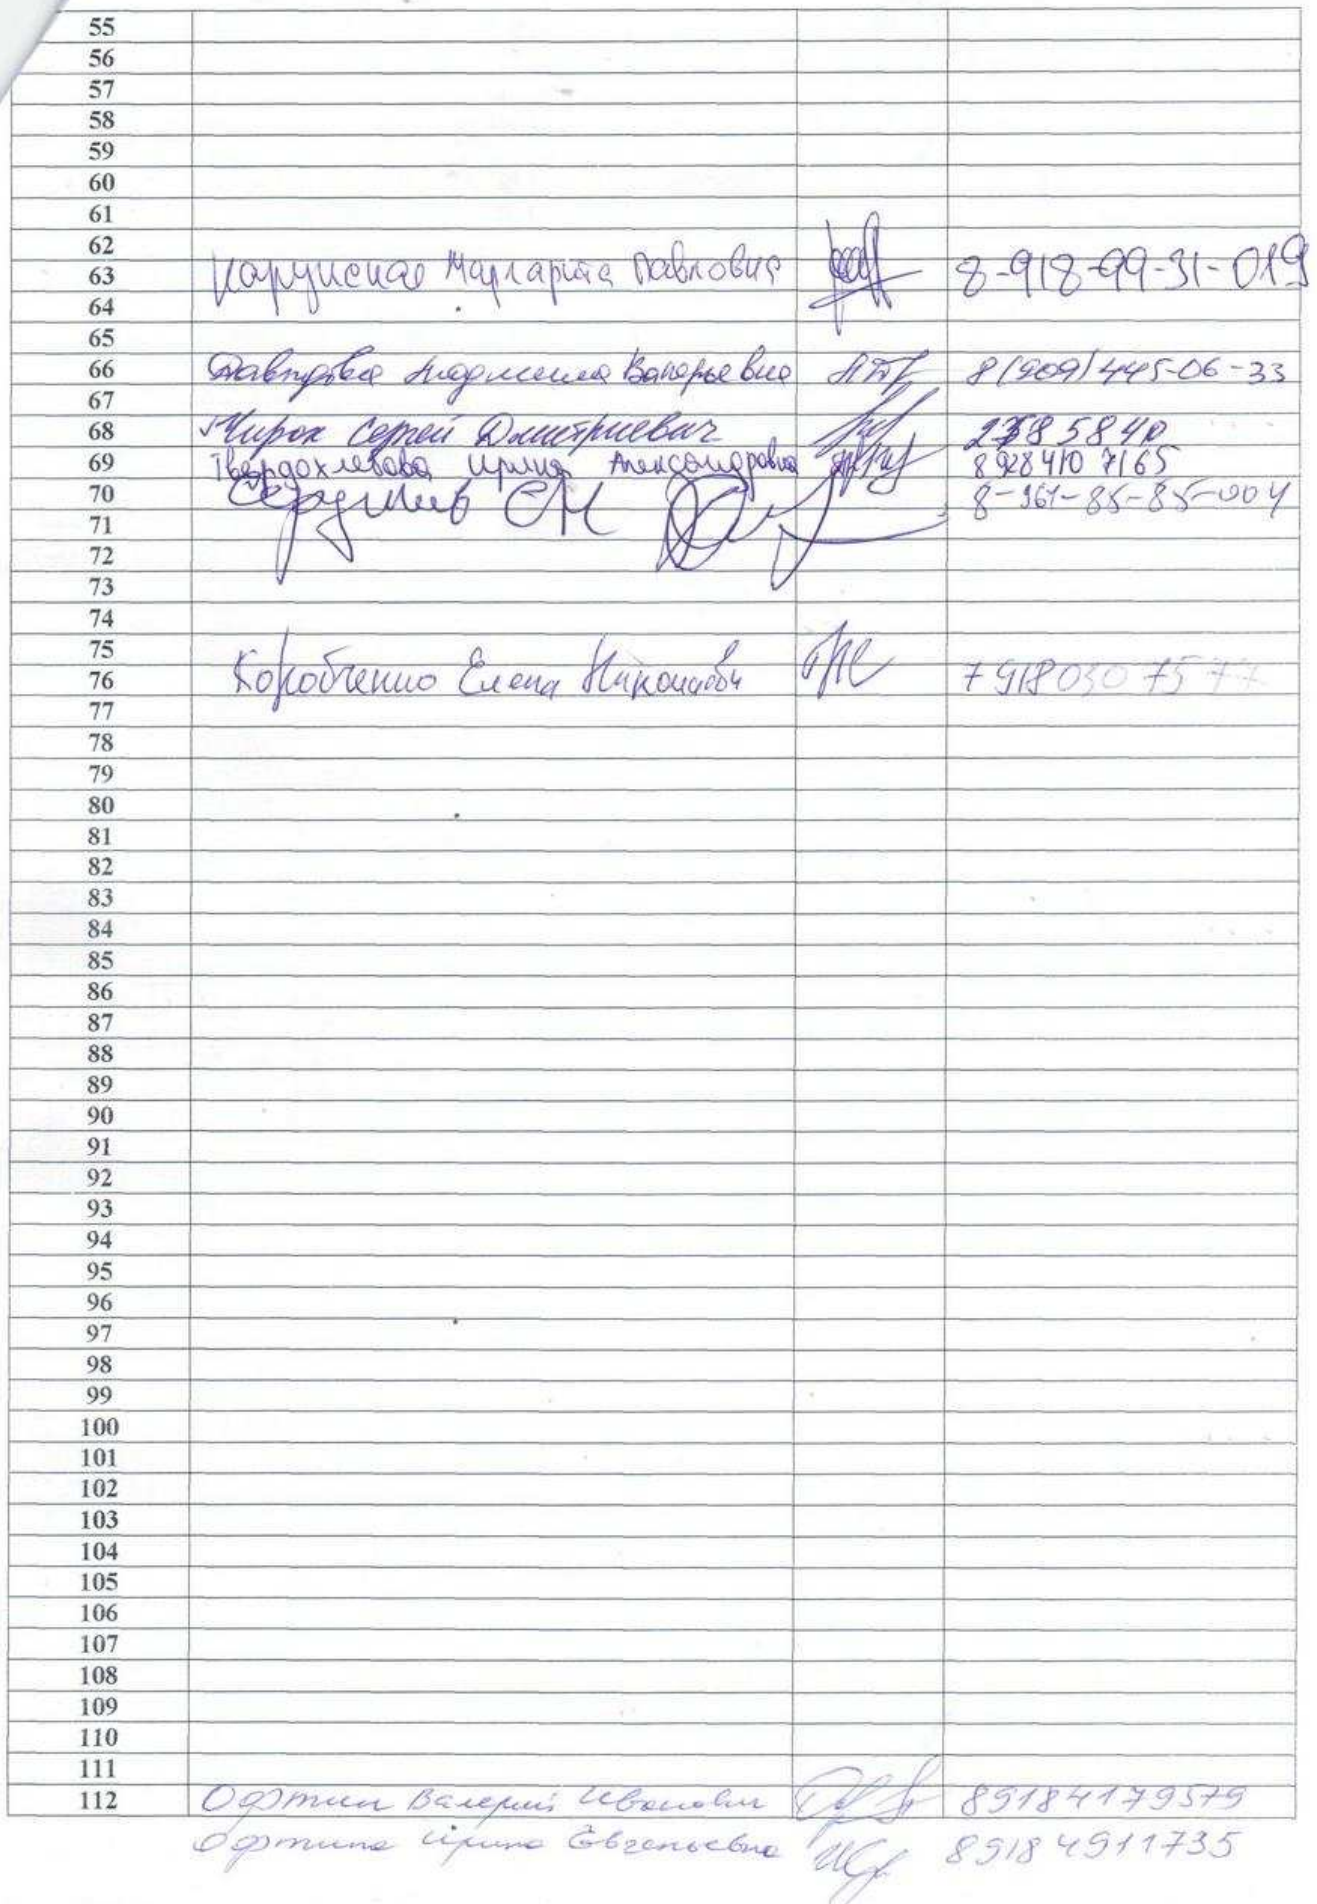 55
56
57
58
59
60
61
62
63 Маргарита Павловна 8-918-99-31-019
64
65
66 Давыдова Людмила Валерьевна 8(909)445-06-33
67
68 Сергей Дмитриевич
69 Твердохлебова Ирина Александровна 8928410 7165
70 8-961-85-85-004
71
72
73
74
75
76 Коробченко Елена 7918030 7577
77
78
79
80
81
82
83
84
85
86
87
88
89
90
91
92
93
94
95
96
97
98
99
100
101
102
103
104
105
106
107
108
109
110
111
112 Валерий Иванович 89184179579
Ирина Евгеньевна 89184911735